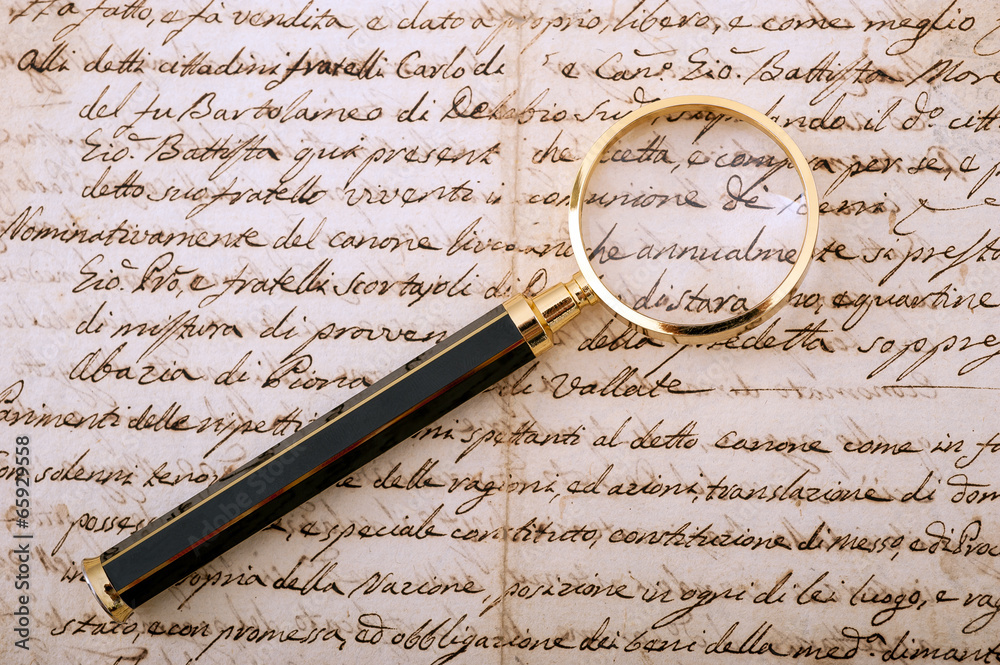 fatto, e fà vendita, e dato a proprio, libero, e come meglio
Alli detti cittadini fratelli Carlo di e Can.º Gio. Battista More
del fu Bartolameo di ando il d.º citt
Gio. Battista qui present che cetta, e compra per se, e p
detto suo fratello viventi in comunione di beni e
Nominativamente del canone livel che annualmente si presta
Gio. Prò, e fratelli Scortajoli di no, e quartine
di mistura di provven della detta soppre
Abazia di Piona di Vallate
Parimenti delle rispetti spettanti al detto canone come in f
solenni delle ragioni, ed azioni, translazione di dom
posses e speciale constituto, constituzione di messo, e di Proc
propria della Nazione, posizione in ogni di lei luogo, e rag
stato, e con promessa, ed obbligazione dei beni della med.ª dimant
Adobe Stock | #65929558